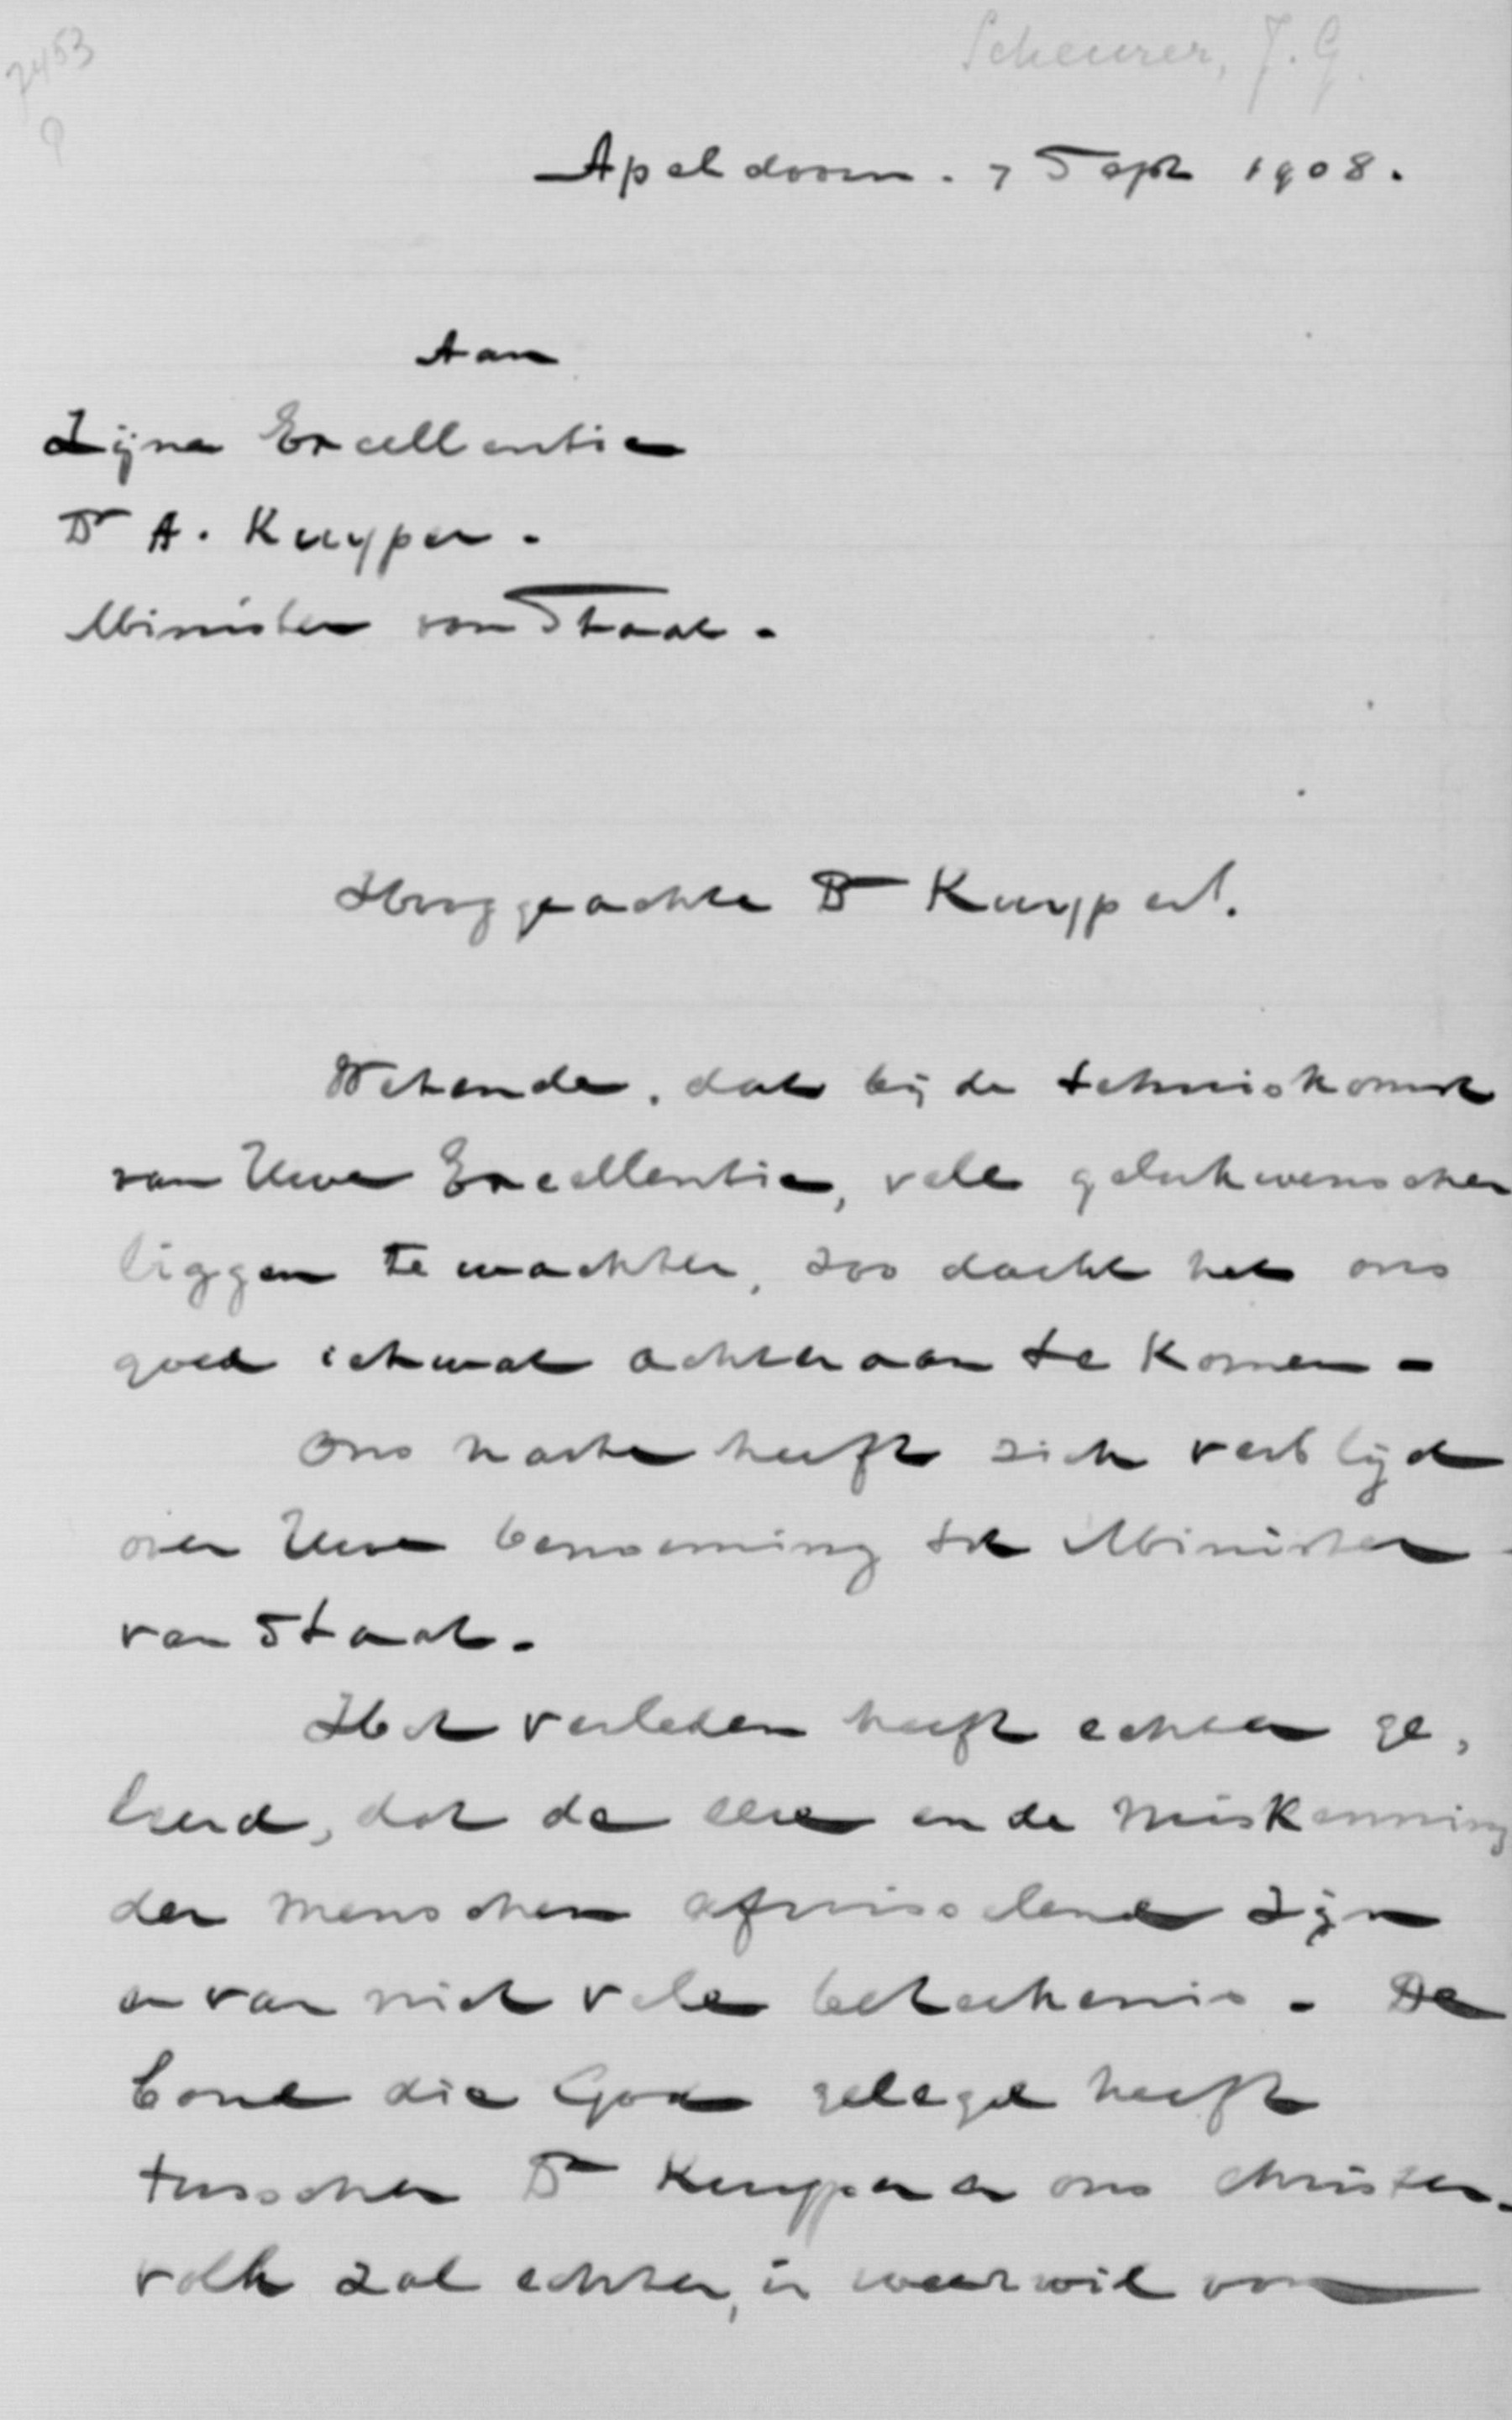 7453
Scheurer, J. G.
Apeldoorn. 7 Sept 1908.
Aan
Zijne Excellentie
Dr A. Kuyper.
Minister van Staat.
Hooggeachte Dr Kuyper!
Wetende, dat bij de tehuiskomst
van Uwe Excellentie, vele gelukwenschen
liggen te wachten, zoo dacht het ons
goed ietwat achteraan te komen.
Ons harte heeft zich verblijd
over Uwe benoeming tot Minister
van Staat.
Het verleden heeft echter ge,
leerd, dat de eere en de miskenning
der menschen afwisselend zijn
en van niet vele beteekenis. De
band die God gelegd heeft
tusschen Dr Kuyper en ons Christen-
volk zal echter, in weerwil van